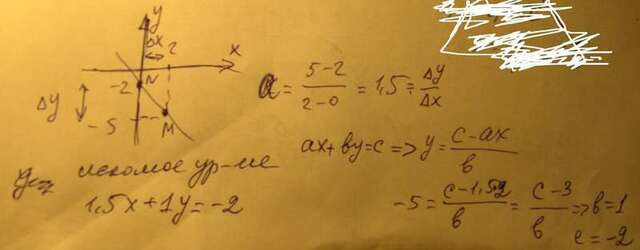 y
Δx 2
x
N
-2
Δy
-5
M
a = 5-2 / 2-0 = 1,5 = Δy / Δx
ax + by = c => y = c-ax / b
искомое ур-ие
1,5x + 1y = -2
-5 = c-1,5·2 / b = c-3 / b => b=1
c = -2